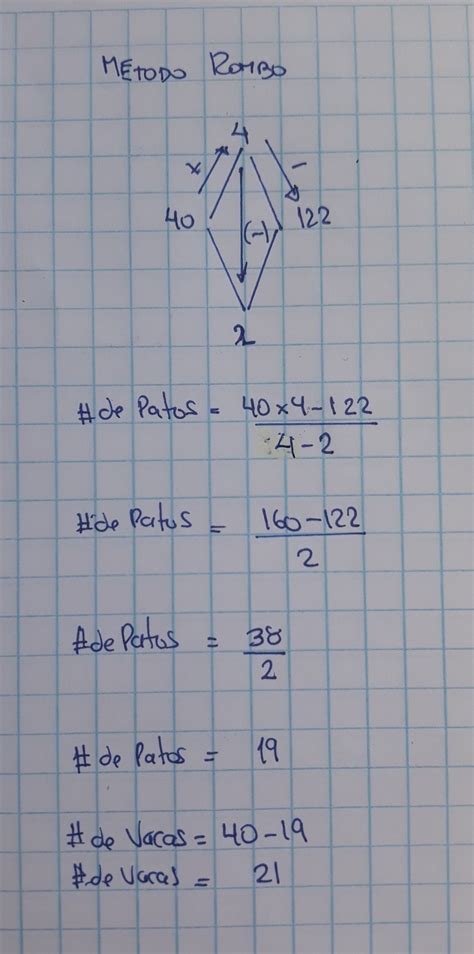 METODO ROMBO
4
x -
40 (-) 122
2
# de Patos = 40x4-122
4-2
# de Patos = 160-122
2
# de Patos = 38
2
# de Patos = 19
# de Vacas = 40-19
# de Vacas = 21